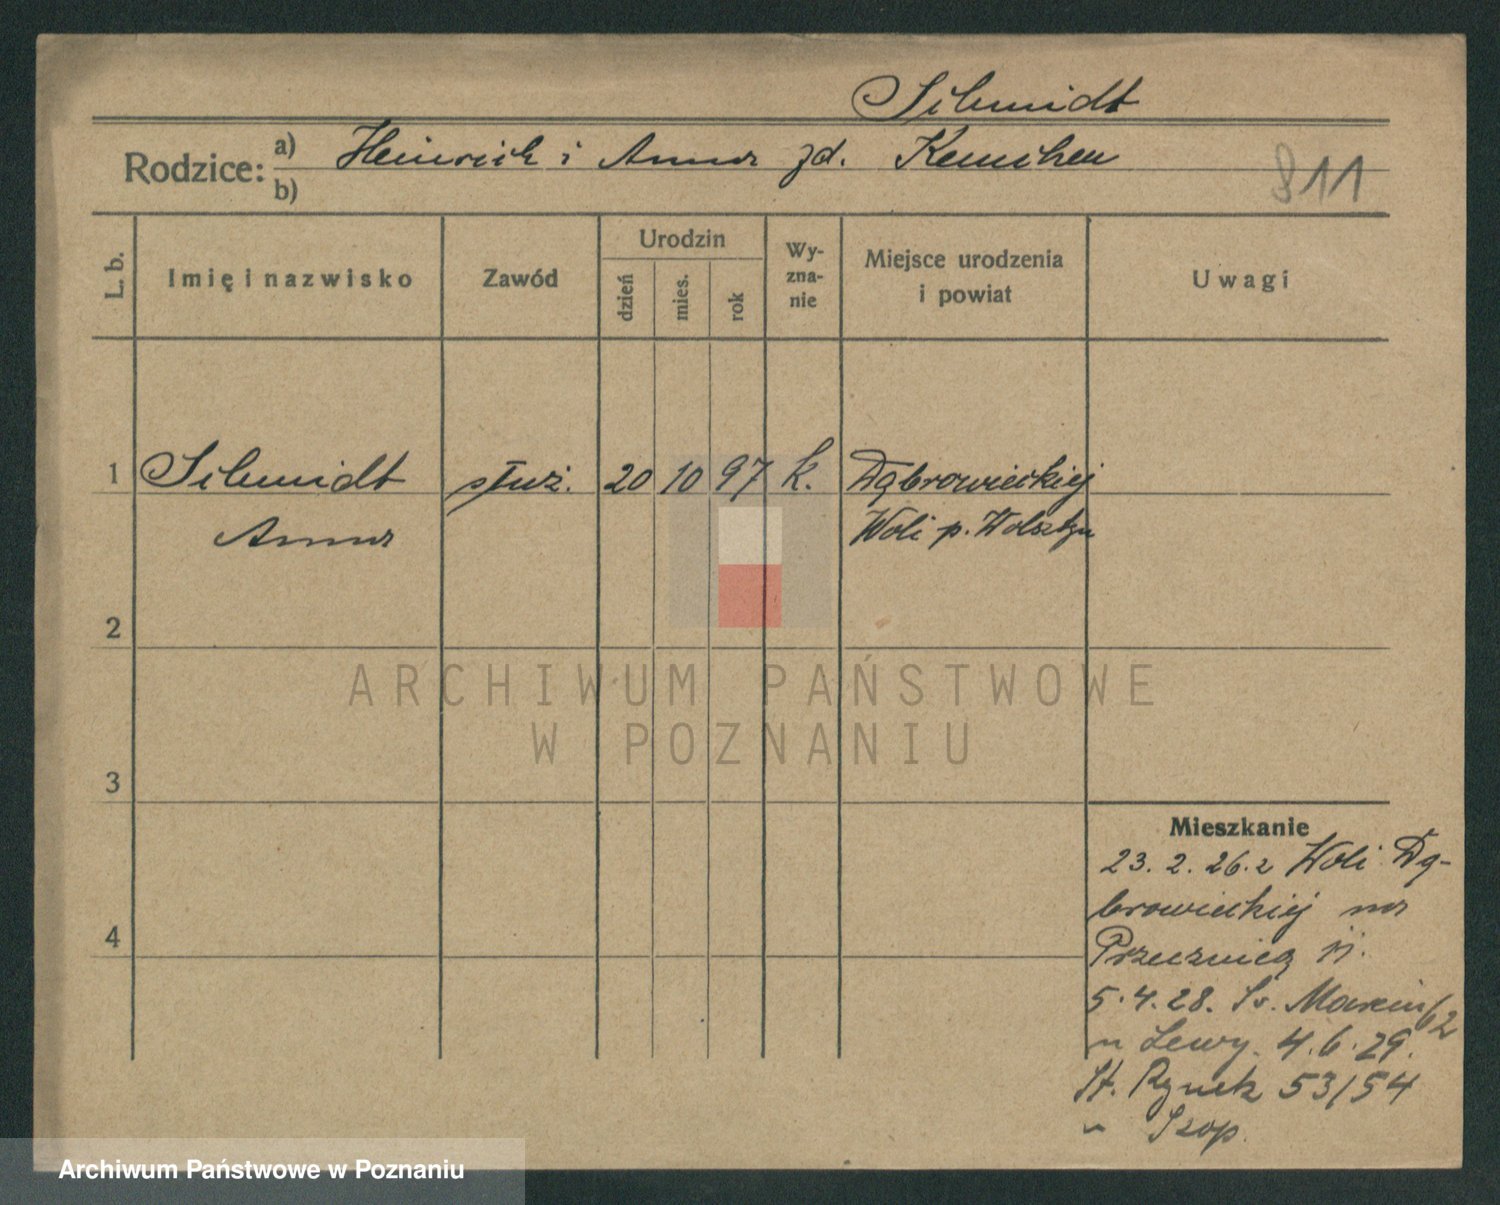 Schmidt
Rodzice: a) Heinrich i Anna zd. Kemchen
b)
811
L. b.
Imię i nazwisko
Zawód
Urodzin
dzień
mies.
rok
Wy-
zna-
nie
Miejsce urodzenia
i powiat
Uwagi
1 Schmidt służ. 20 10 97 k. Dąbrowieckiej
Anna Woli p. Wolsztyn
2
3
4
Mieszkanie
23. 2. 26. z Woli Dą-
browieckiej na
Przecznicą 11.
5. 4. 28. Św. Marcin 62
u Lewy. 4. 6. 29.
St. Rynek 53/54
u Szop.
ARCHIWUM PAŃSTWOWE
W POZNANIU
Archiwum Państwowe w Poznaniu